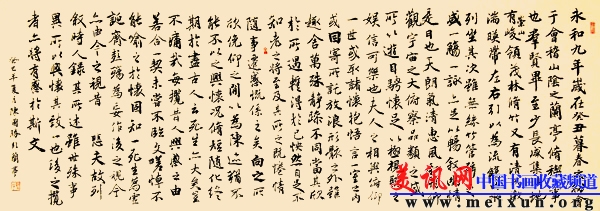 永和九年歲在癸丑暮春之初會
于會稽山陰之蘭亭脩禊事
也群賢畢至少長咸集此地
有崇山峻領茂林脩竹又有清流激
湍暎帶左右引以為流觴曲水
列坐其次雖無絲竹管絃之
盛一觴一詠亦足以暢敘幽情
是日也天朗氣清惠風和暢仰
觀宇宙之大俯察品類之盛
所以遊目騁懷足以極視聽之
娛信可樂也夫人之相與俯仰
一世或取諸懷抱悟言一室之內
或因寄所託放浪形骸之外雖
趣舍萬殊靜躁不同當其欣
於所遇暫得於己快然自足不
知老之將至及其所之既惓情
隨事遷感慨係之矣向之所
欣俛仰之間以為陳迹猶不
能不以之興懷況脩短隨化終
期於盡古人云死生亦大矣豈
不痛哉每攬昔人興感之由
若合一契未嘗不臨文嗟悼不
能喻之於懷固知一死生為虛
誕齊彭殤為妄作後之視今
亦由今之視昔悲夫故列
敘時人錄其所述雖世殊事
異所以興懷其致一也後之攬
者亦將有感於斯文
美讯网 中国书画收藏频道
www.meixun.org